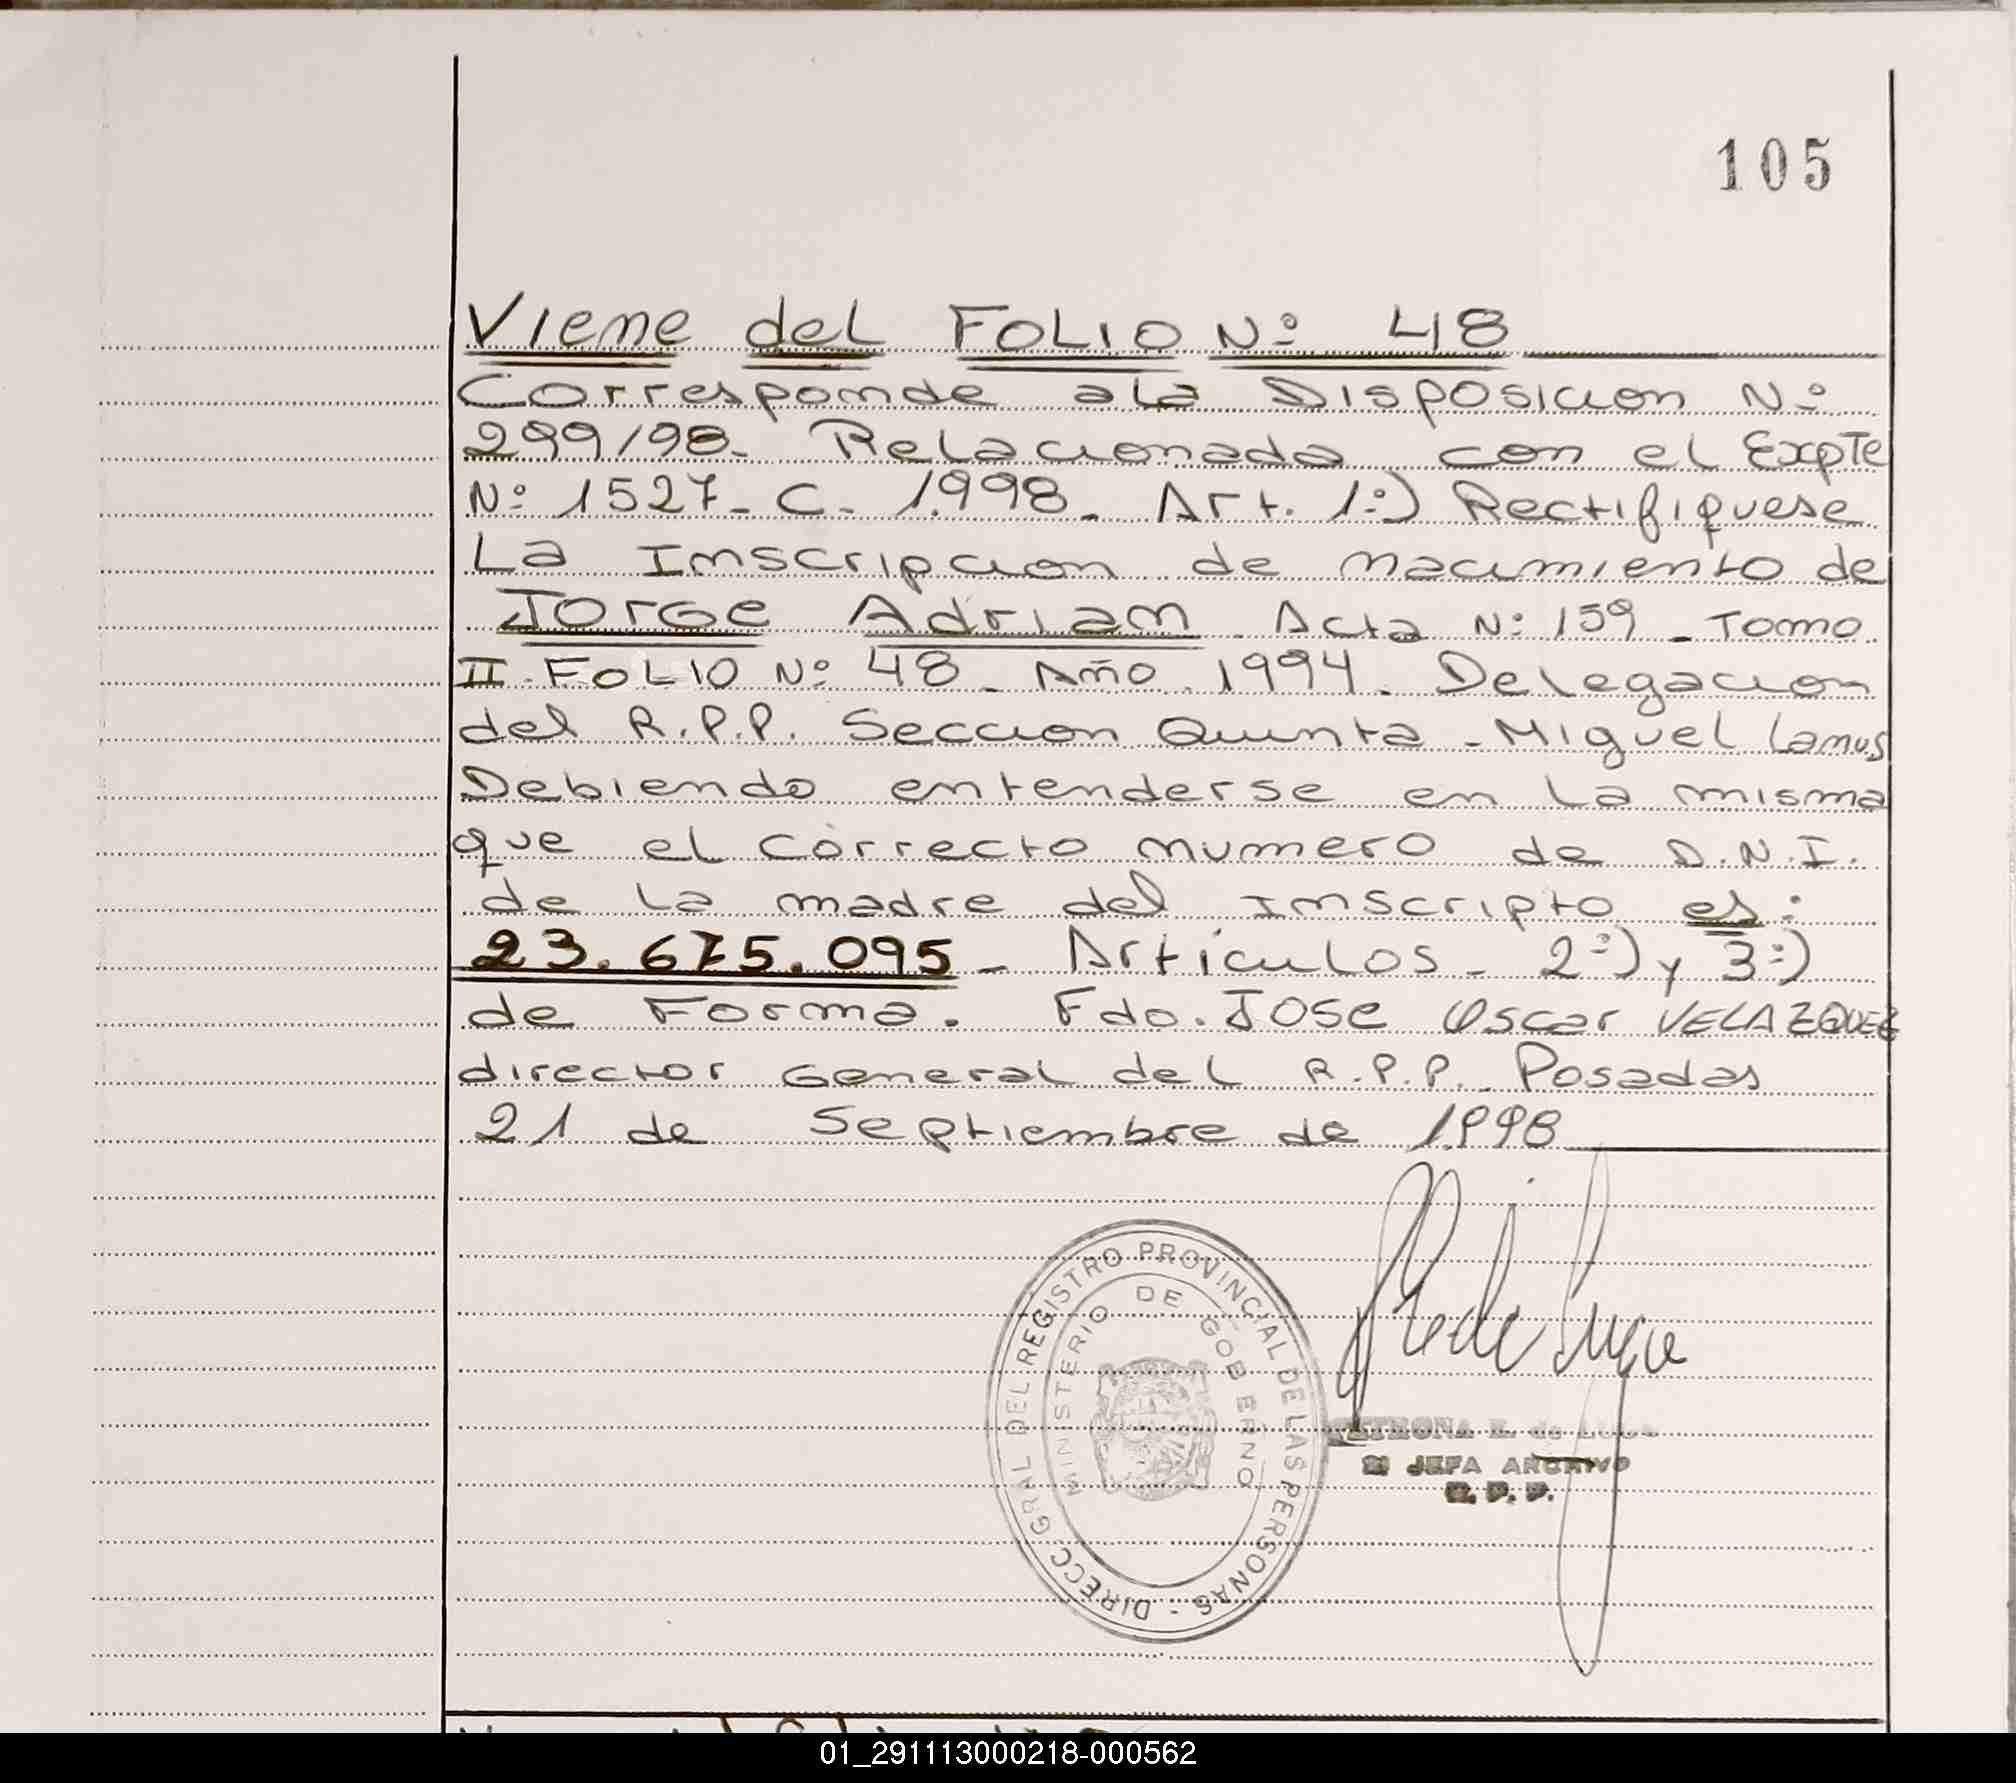 105
Viene del FOLIO Nº 48
Corresponde a la Disposicion Nº
299/98. Relacionada con el Expte
Nº 1527-C-1.998. Art. 1º) Rectifiquese
La Inscripcion de nacimiento de
JORGE Adrian. Acta Nº 159 - Tomo
II. FOLIO Nº 48. Año 1994. Delegacion
del R.P.P. Seccion Quinta - Miguel Lanus
Debiendo entenderse en la misma
que el correcto numero de D.N.I.
de la madre del Inscripto es:
23.675.095 - Artículos - 2º) y 3º)
de Forma. Fdo. JOSE Oscar VELAZQUEZ
director General del R.P.P. Posadas
21 de Septiembre de 1.998
DIRECC. GRAL DEL REGISTRO PROVINCIAL DE LAS PERSONAS -
MINISTERIO DE GOBIERNO
JEFA ARCHIVO
R. P. P.
01_291113000218-000562